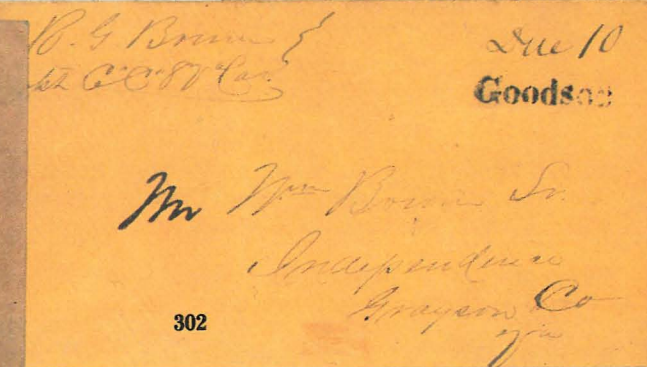 B. G. Bourn
Co. C. 8 Va Cav.
Due 10
Goodson
Mr Wm Bourn Sr.
Independence
Grayson Co
Va
302